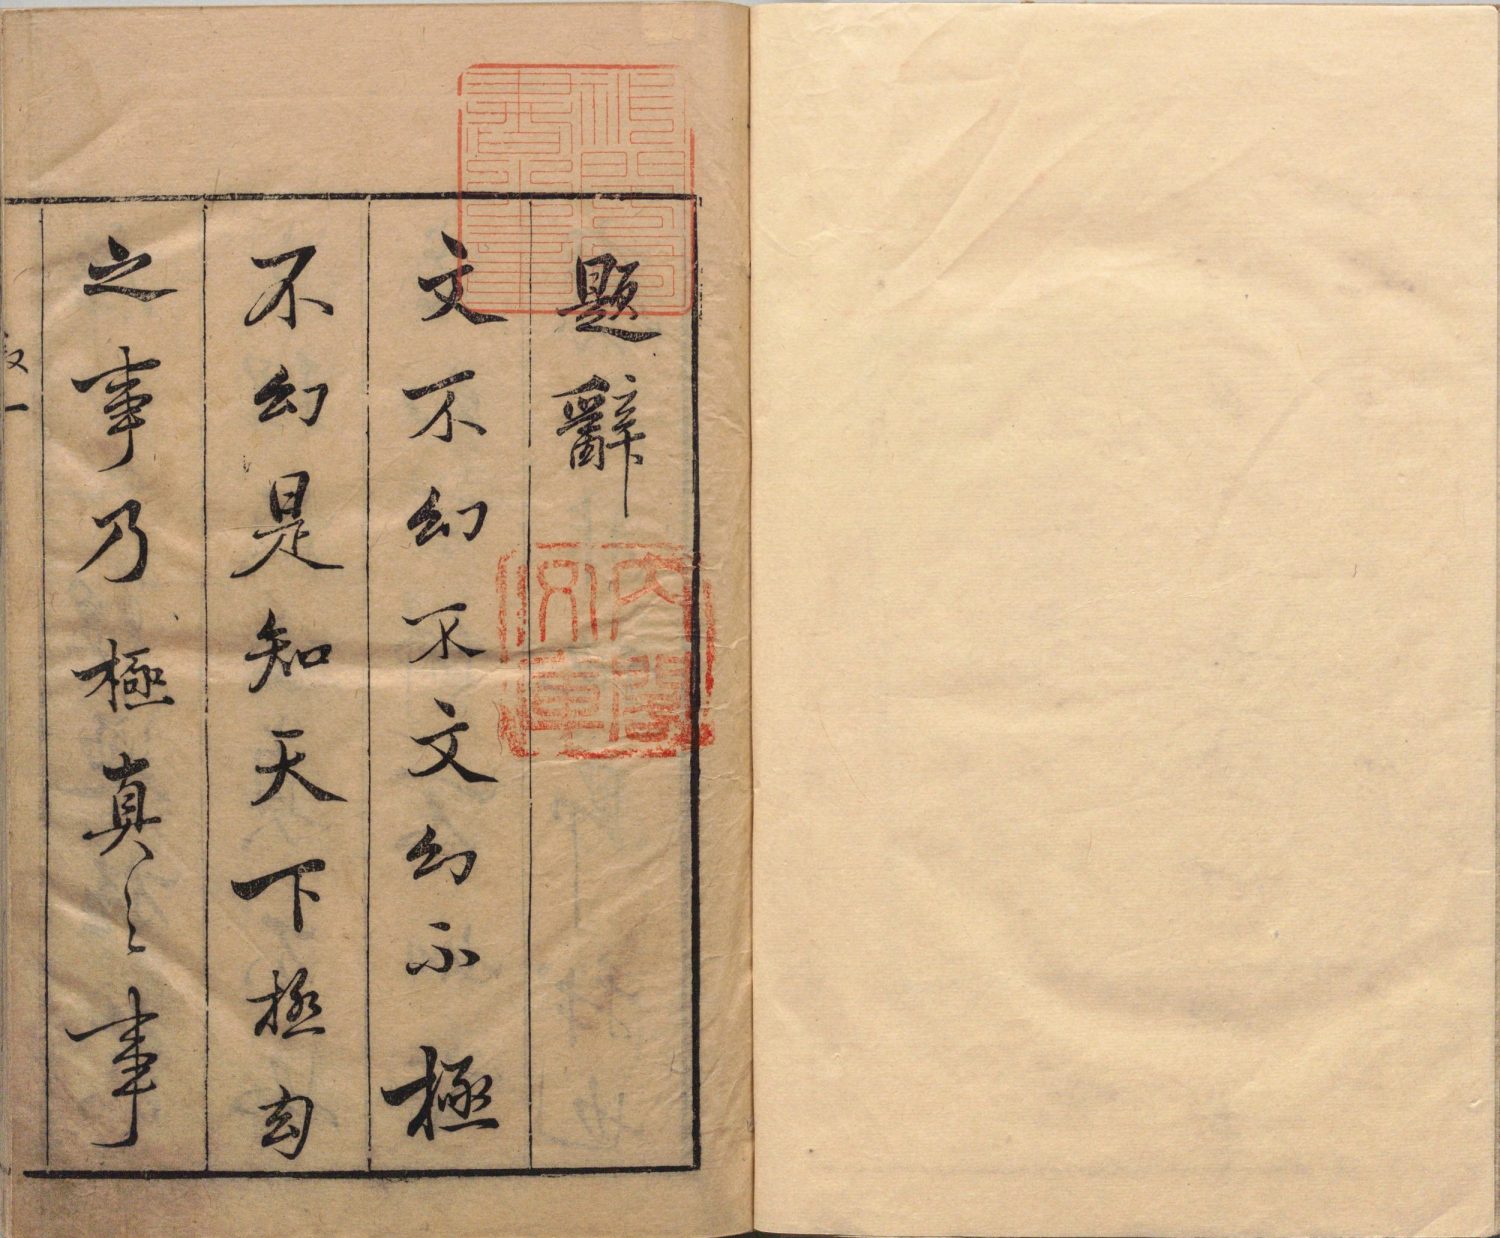 題辭
文不幻不文幻不極
不幻是知天下極幻
之事乃極真之事
叙一
内閣文庫